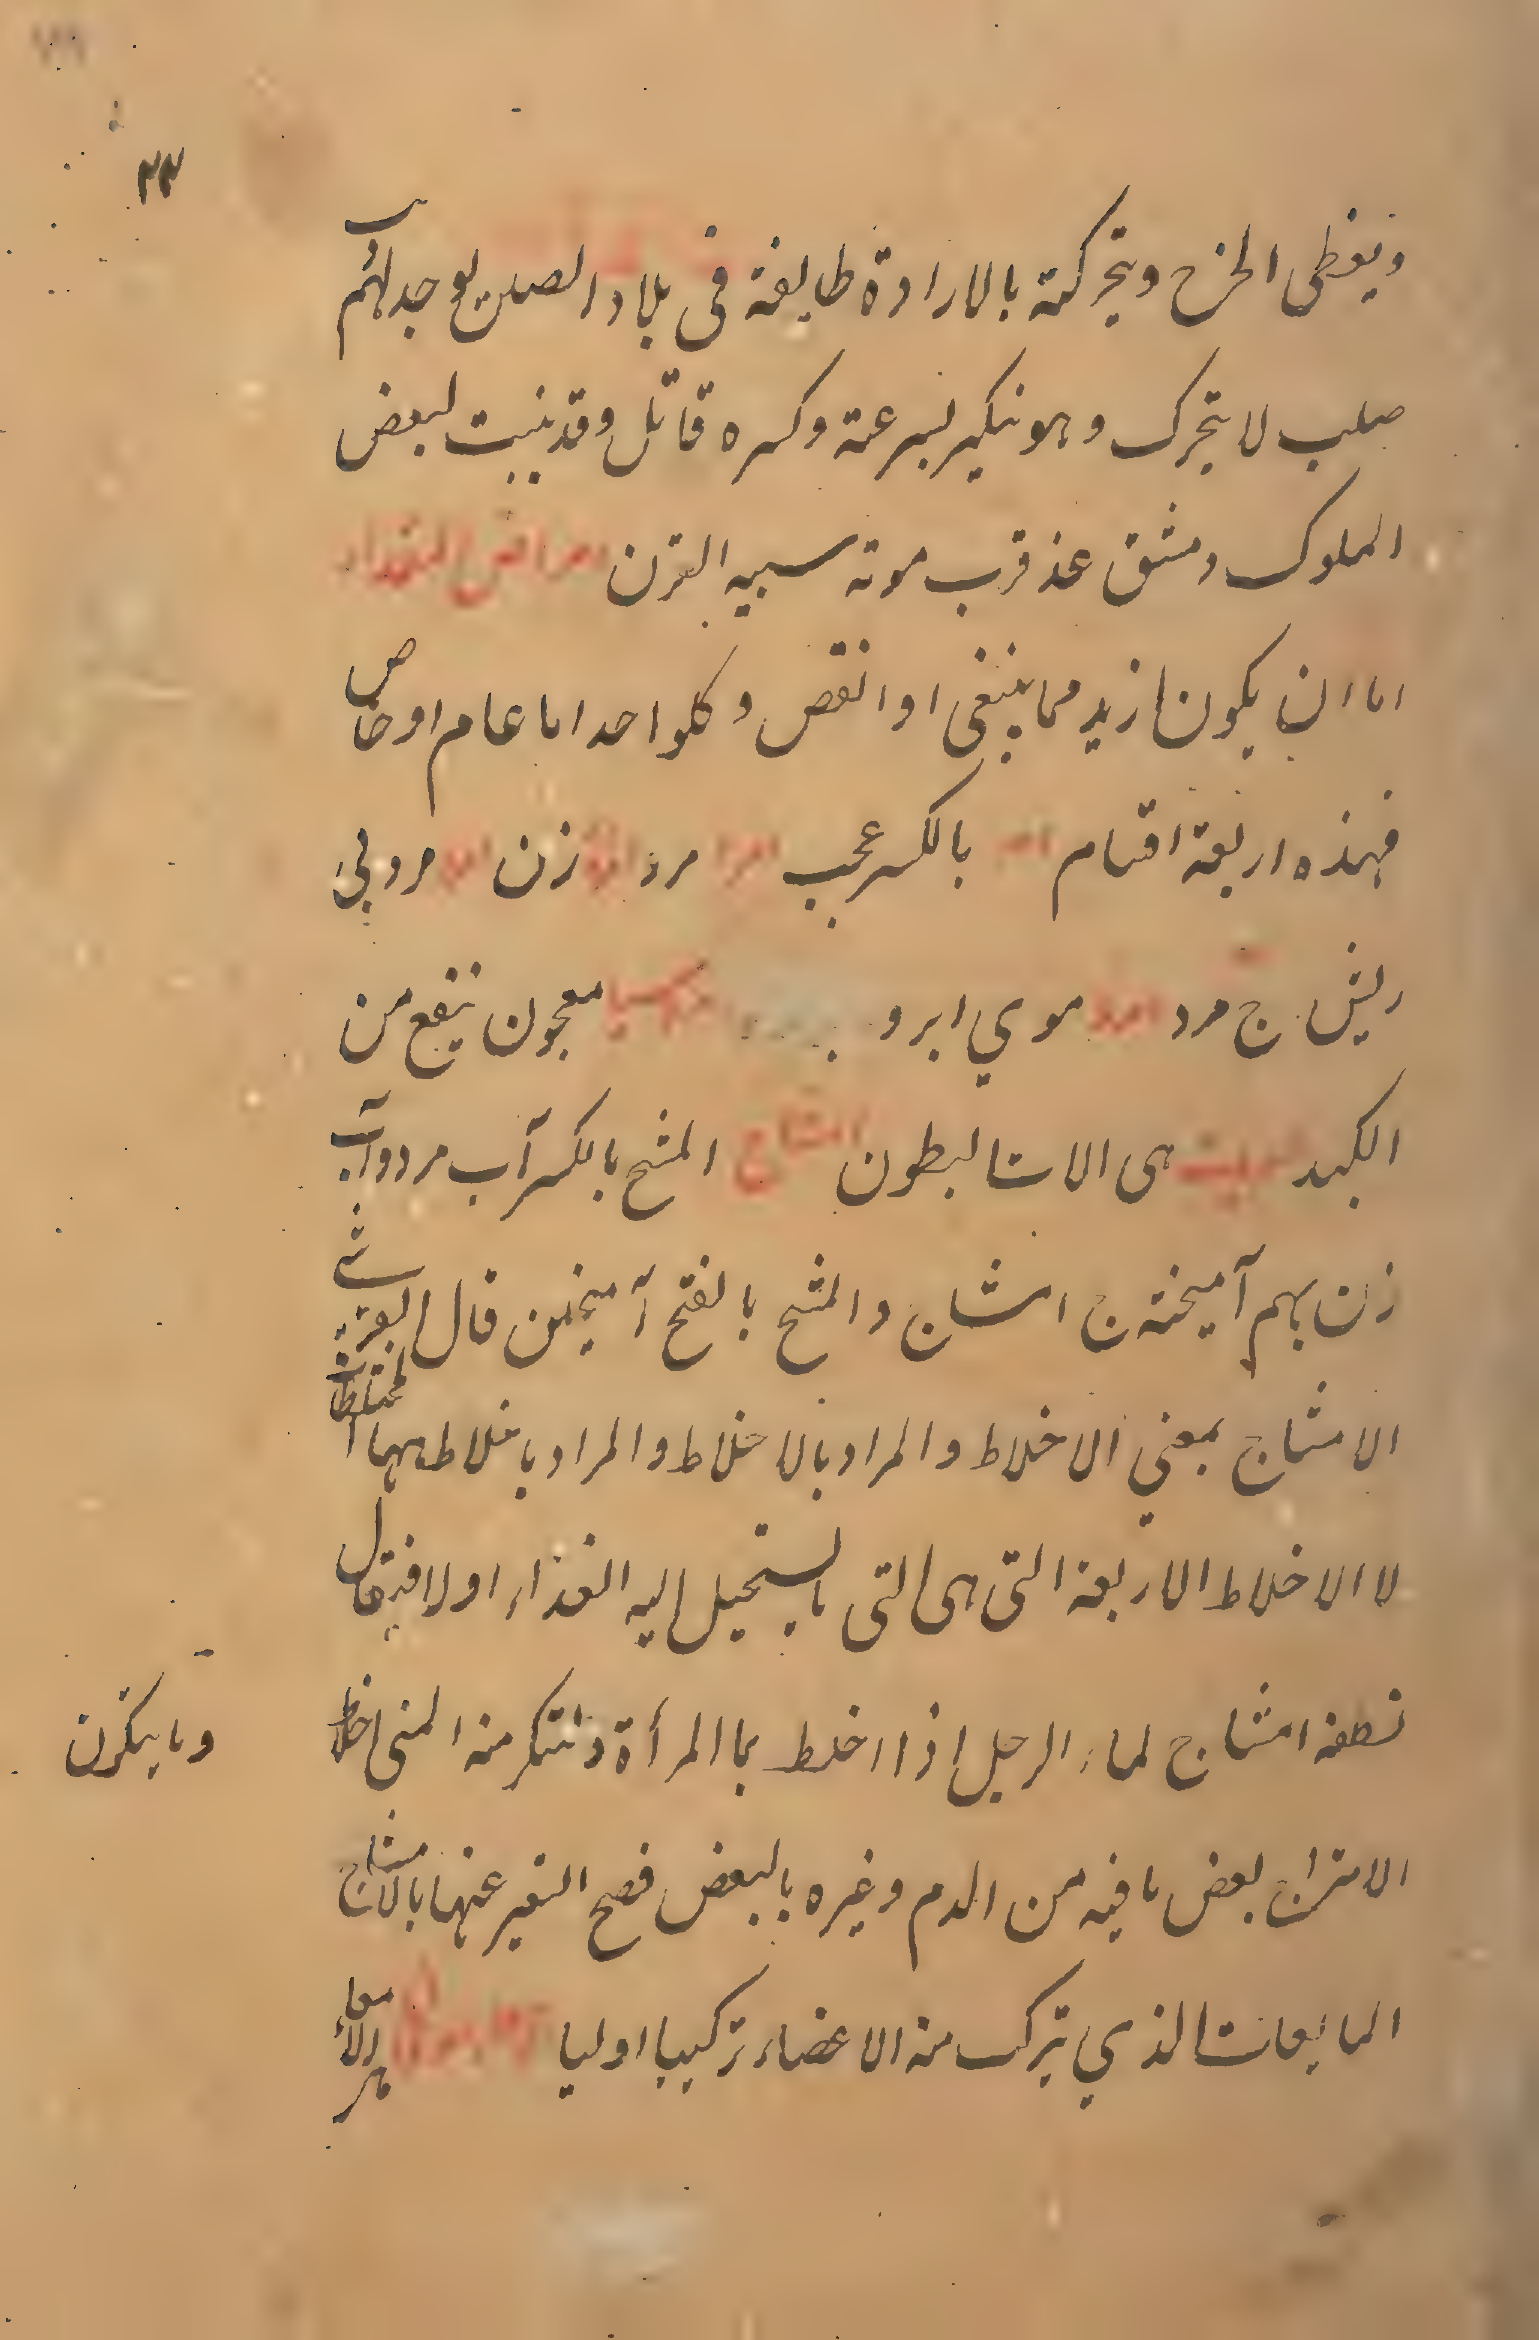 ٢٣
ويغطى الخرج ويتحركته بالارادة طايفة فى بلاد الصين يوجد لهم
صلب لا يتحرك وهو ينكسر بسرعة وكسره قاتل وقد ينبت لبعض
الملوك دمشق عند قرب موته سببه القرن امراض المقدار
اما ان يكون ازيد مما ينبغى او انقص وكلواحد اما عام او خاص
فهذه اربعة اقسام بالكسر عجب مرد زن مردبى
ريش ج مرد موي ابرو معجون ينفع من
الكبد هى الاسـا لبطون امشاج المشج بالكسر آب مرد وآب
زن بهم آميخته ج امشاج والمشج بالفتح آميختن قال القرشى
الامشاج بمعنى الاخلاط والمراد بالاخلاط والمراد باخلاط ههنا المختلطات
لا الاخلاط الاربعة التى هى التى ما يستحيل اليه الغذاء اولا فيقال
نطفه امشاج لماء الرجل اذا اخلط بما المرأة
وما يتكون
الامتزاج بعض ما فيه من الدم وغيره بالبعض فصح التعبير عنها بالامشاج
المايعات الذي يتركب منه الاعضاء تركيبا اوليا